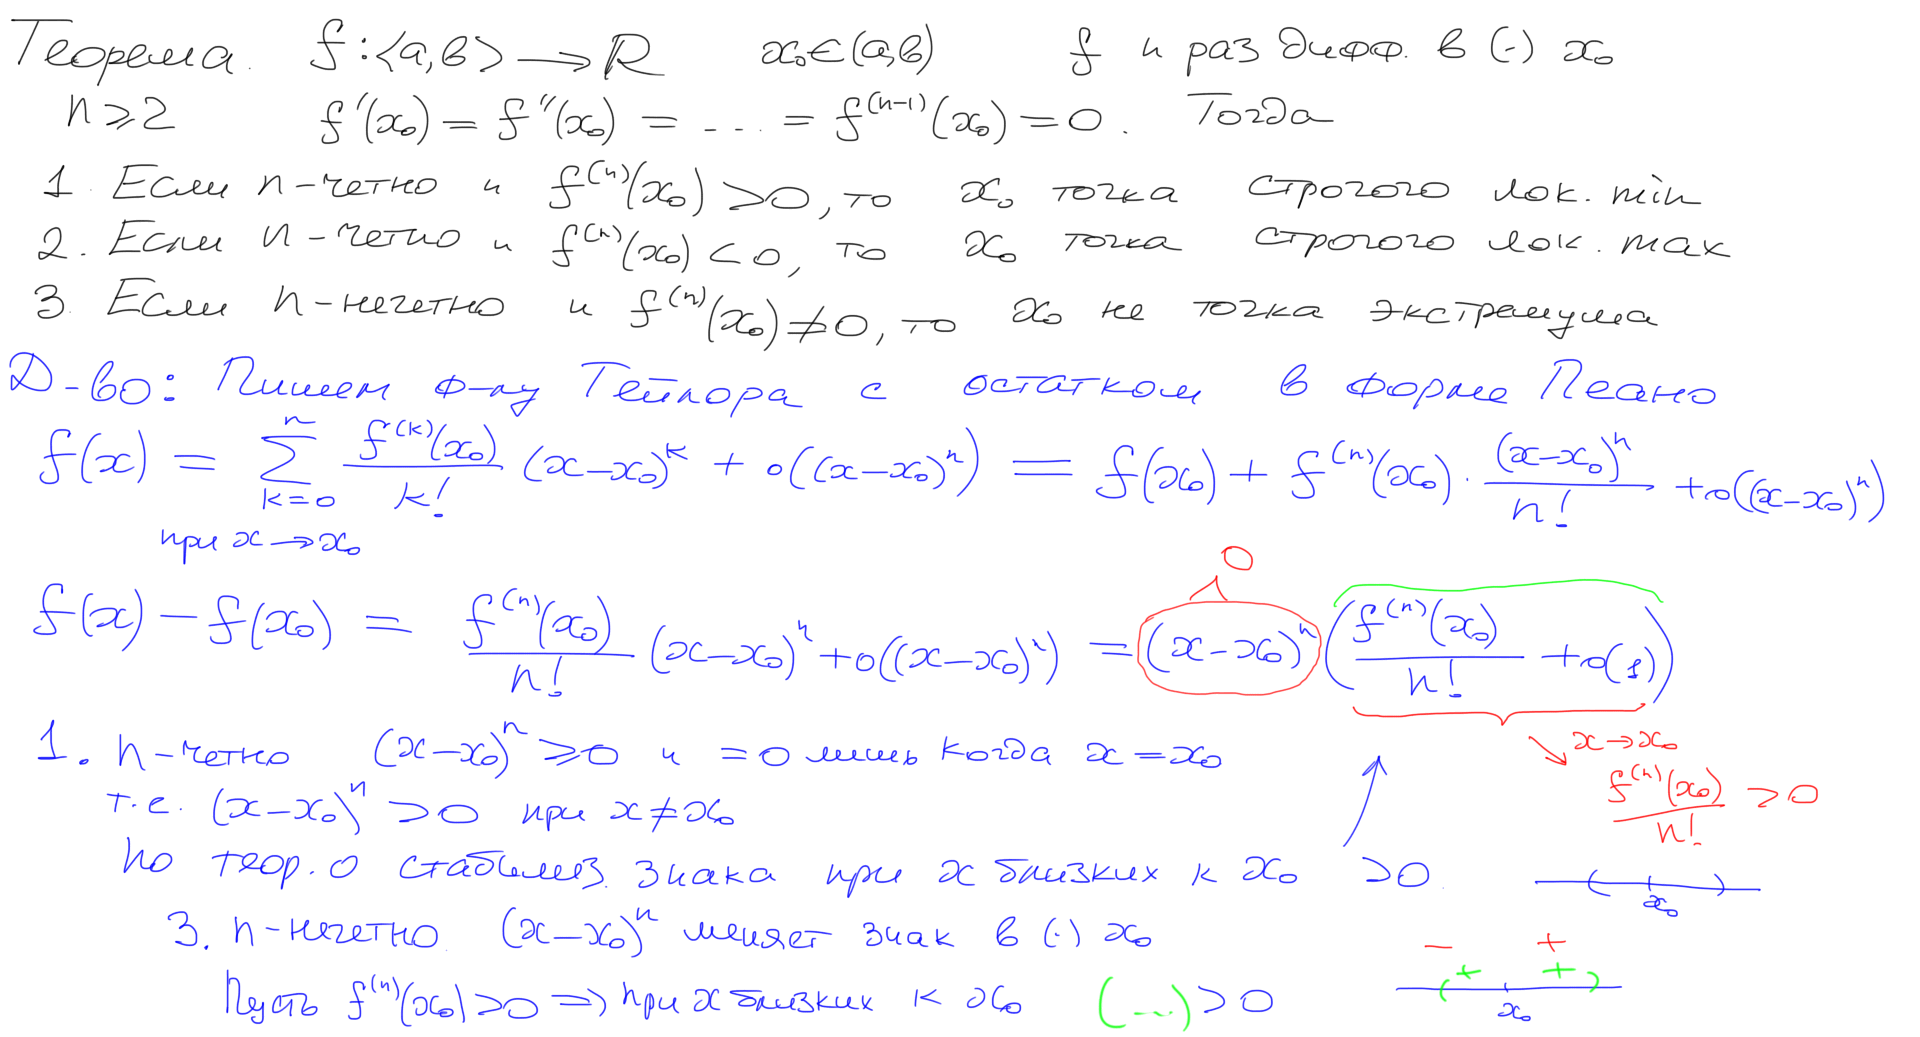 Теорема. f:⟨a,b⟩ → R x₀∈(a,b) f n раз дифф. в (·) x₀
n⩾2 f'(x₀) = f''(x₀) = ... = f⁽ⁿ⁻¹⁾(x₀) = 0. Тогда
1. Если n-четно и f⁽ⁿ⁾(x₀) > 0, то x₀ точка строгого лок. min
2. Если n-четно и f⁽ⁿ⁾(x₀) < 0, то x₀ точка строгого лок. max
3. Если n-нечетно и f⁽ⁿ⁾(x₀) ≠ 0, то x₀ не точка экстремума
Д-во: Пишем ф-лу Тейлора с остатком в форме Пеано
f(x) = ∑_{k=0}^{n} f⁽ᵏ⁾(x₀)/k! (x-x₀)ᵏ + o((x-x₀)ⁿ) = f(x₀) + f⁽ⁿ⁾(x₀) · (x-x₀)ⁿ/n! + o((x-x₀)ⁿ)
при x → x₀
0
f(x) - f(x₀) = f⁽ⁿ⁾(x₀)/n! (x-x₀)ⁿ + o((x-x₀)ⁿ) = (x-x₀)ⁿ (f⁽ⁿ⁾(x₀)/n! + o(1))
x → x₀
f⁽ⁿ⁾(x₀)/n! > 0
1. n-четно (x-x₀)ⁿ ⩾ 0 и = 0 лишь когда x = x₀
т.е. (x-x₀)ⁿ > 0 при x ≠ x₀
по теор. о стабилиз. знака при x близких к x₀ > 0
x₀
3. n-нечетно. (x-x₀)ⁿ меняет знак в (·) x₀
- +
+ +
x₀
Пусть f⁽ⁿ⁾(x₀) > 0 ⇒ при x близких к x₀ (...) > 0